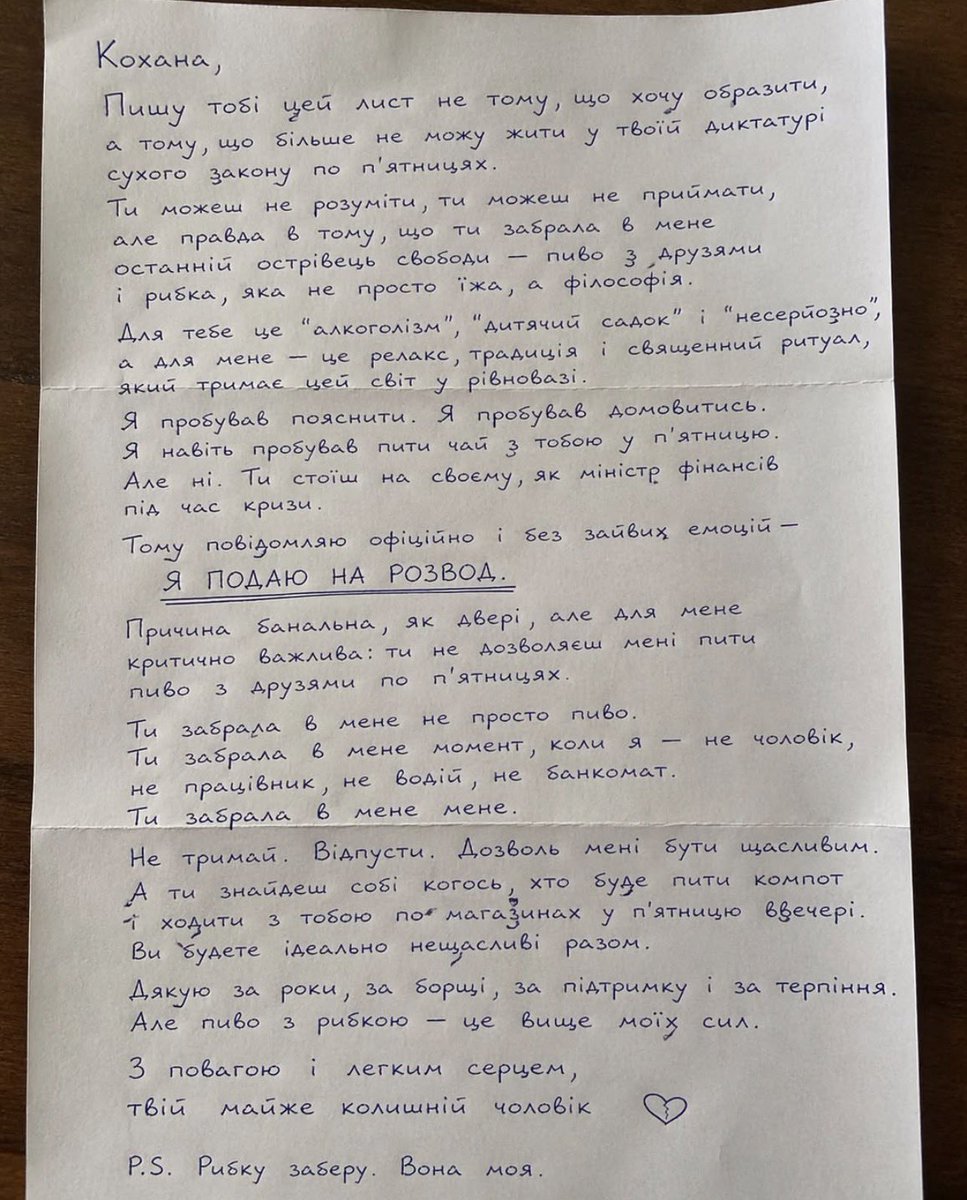 Кохана,
Пишу тобі цей лист не тому, що хочу образити,
а тому, що більше не можу жити у твоїй диктатурі
сухого закону по п'ятницях.
Ти можеш не розуміти, ти можеш не приймати,
але правда в тому, що ти забрала в мене
останній острівець свободи — пиво з друзями
і рибка, яка не просто їжа, а філософія.
Для тебе це "алкоголізм", "дитячий садок" і "несерйозно",
а для мене — це релакс, традиція і священний ритуал,
який тримає цей світ у рівновазі.
Я пробував пояснити. Я пробував домовитись.
Я навіть пробував пити чай з тобою у п'ятницю.
Але ні. Ти стоїш на своєму, як міністр фінансів
під час кризи.
Тому повідомляю офіційно і без зайвих емоцій —
Я ПОДАЮ НА РОЗВОД.
Причина банальна, як двері, але для мене
критично важлива: ти не дозволяєш мені пити
пиво з друзями по п'ятницях.
Ти забрала в мене не просто пиво.
Ти забрала в мене момент, коли я — не чоловік,
не працівник, не водій, не банкомат.
Ти забрала в мене мене.
Не тримай. Відпусти. Дозволь мені бути щасливим.
А ти знайдеш собі когось, хто буде пити компот
і ходити з тобою по магазинах у п'ятницю ввечері.
Ви будете ідеально нещасливі разом.
Дякую за роки, за борщі, за підтримку і за терпіння.
Але пиво з рибкою — це вище моїх сил.
З повагою і легким серцем,
твій майже колишній чоловік
P.S. Рибку заберу. Вона моя.